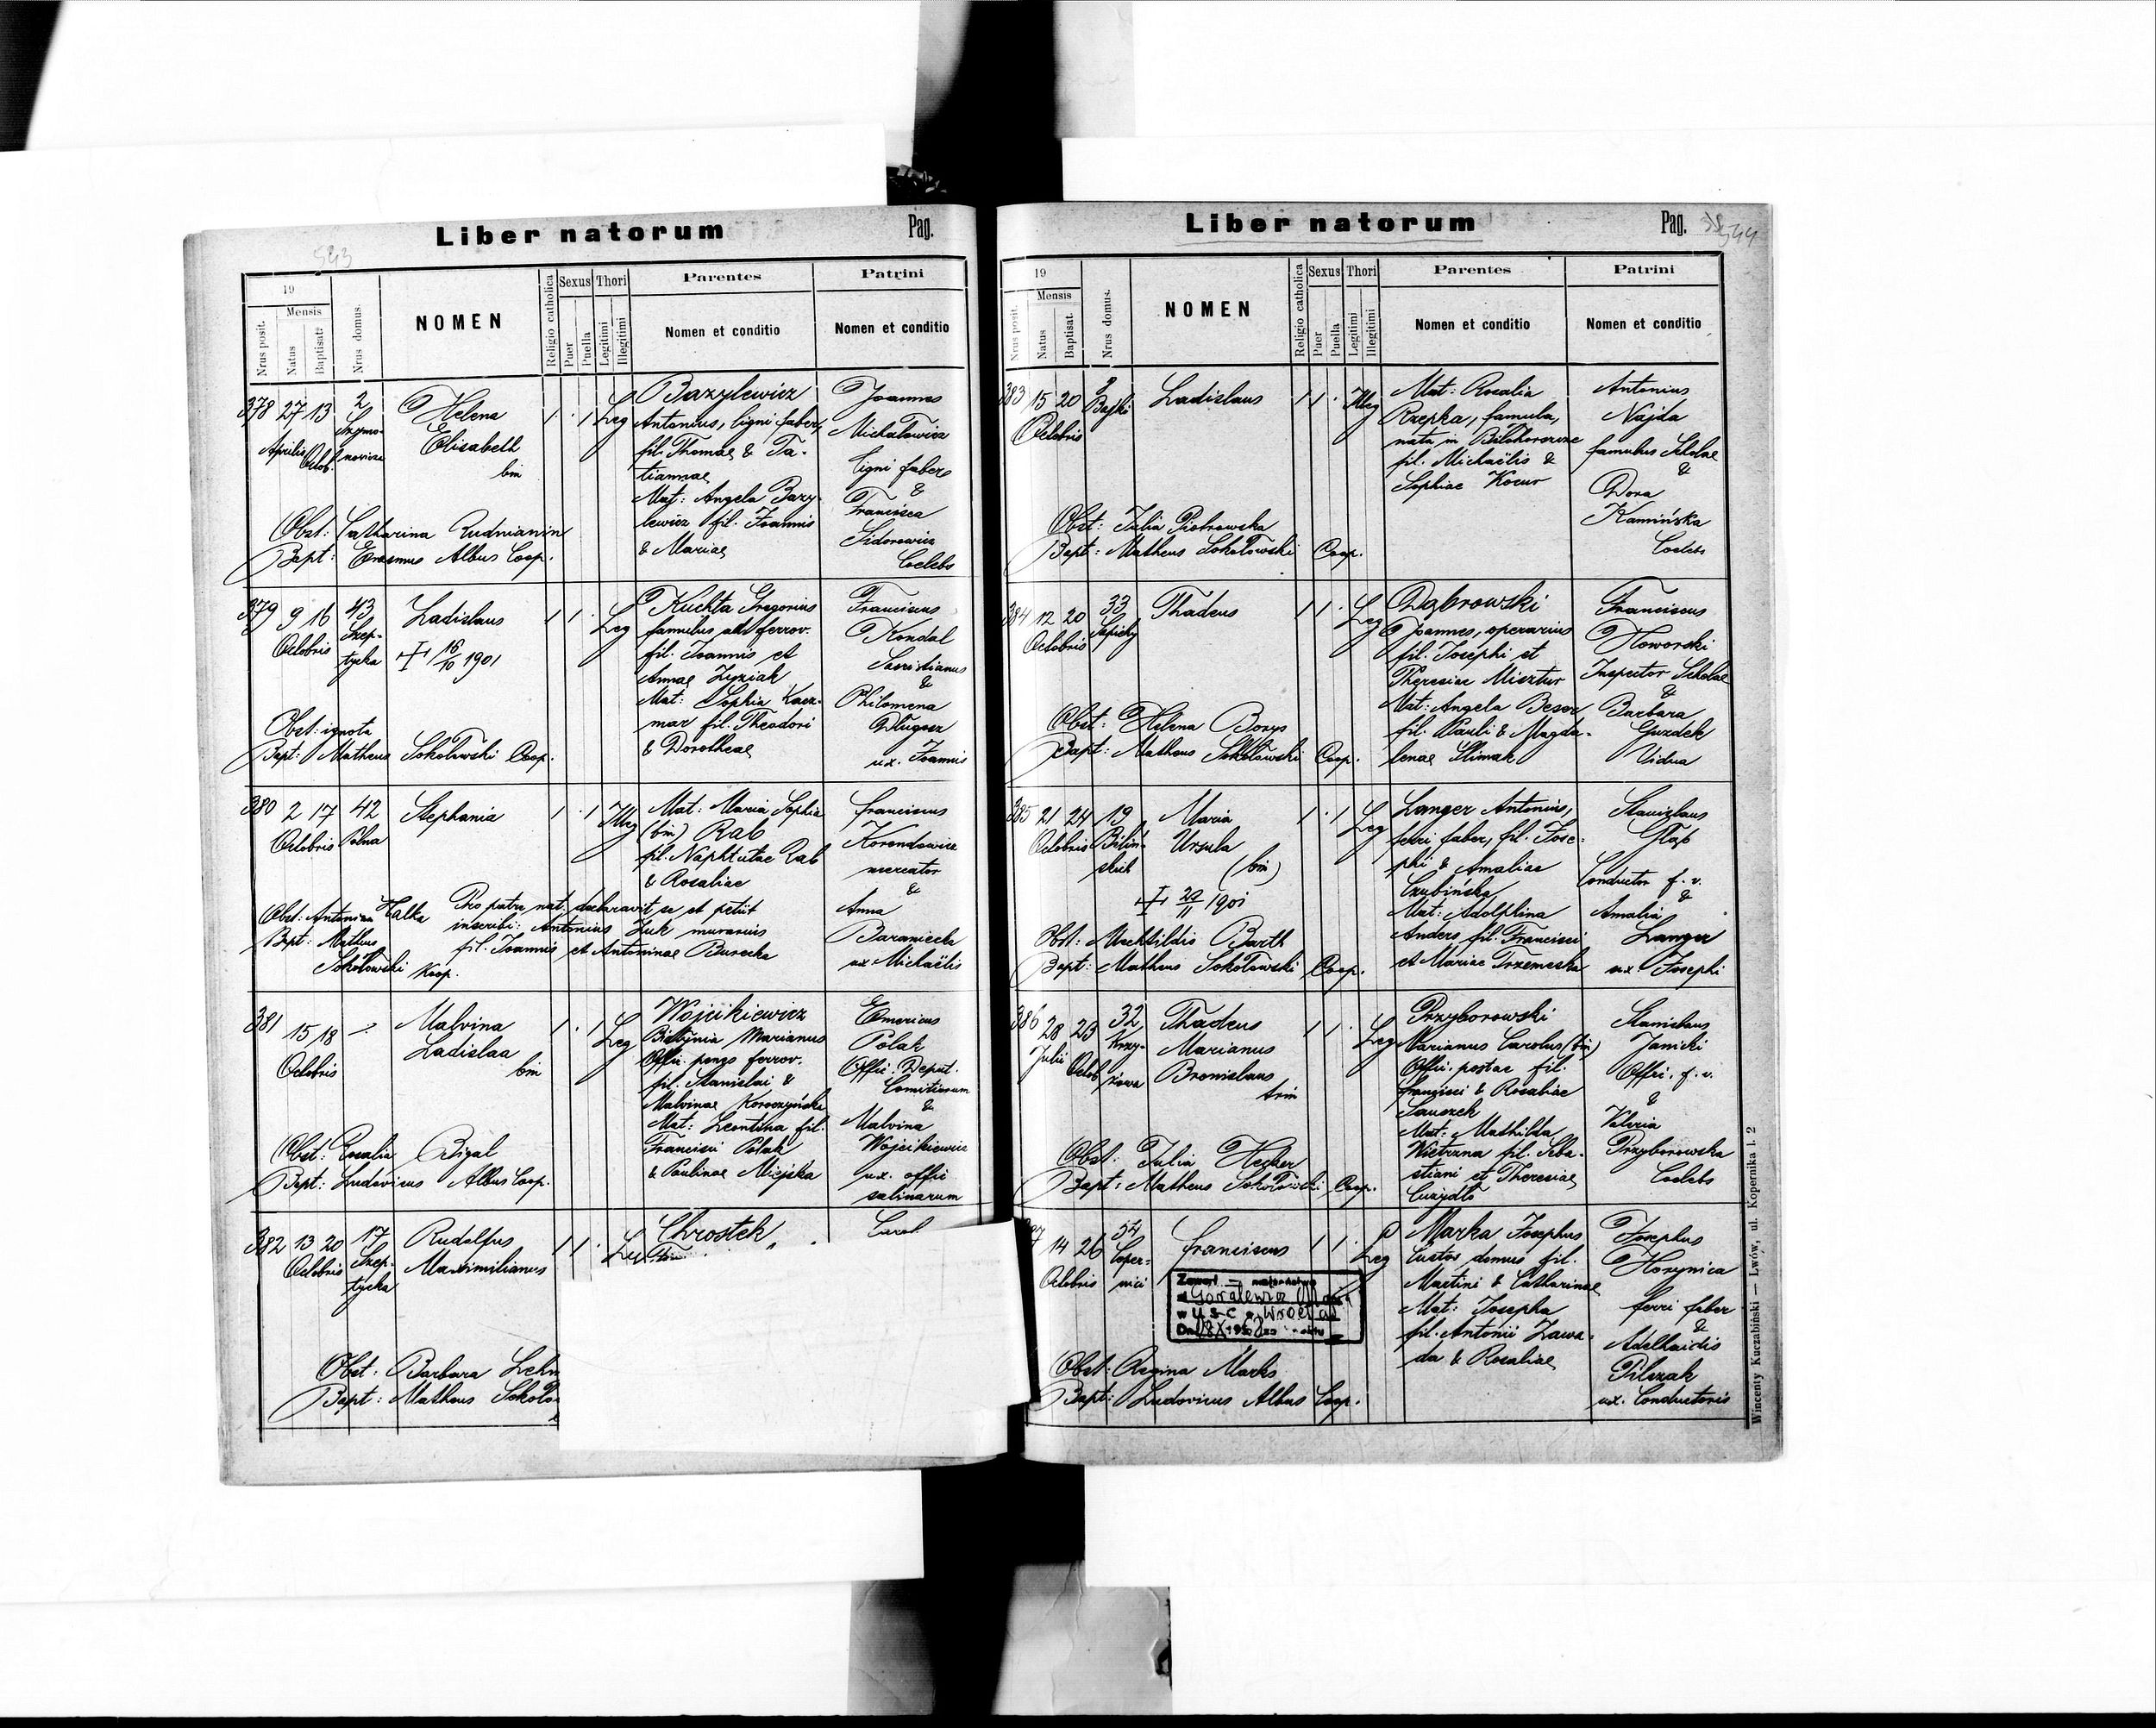 Liber natorum Pag.
543
19
Mensis
Nrus posit.
Natus
Baptisat.
Nrus domus.
NOMEN
Religio catholica
Sexus
Puer
Puella
Thori
Legitimi
Illegitimi
Parentes
Nomen et conditio
Patrini
Nomen et conditio
378 27 13 2
Aprilis Octob.
Helena
Elisabeth
bin
1 . 1 Leg
Bazylewicz
Antonius, ligni faber,
fil. Thomae & Ta-
tiannae
Mat: Angela Bazy-
lewicz fil. Joannis
& Mariae
Joannes
Michalewicz
ligni faber
&
Francisca
Sidorowicz
Coelebs
Obst: Catharina Rudnianin
Bapt: Erasmus Albus Coop.
379 9 16 43
Octobris Szep-
tycka
Ladislaus
16/10 1901
1 1 . Leg
Kuchta Gregorius
famulus ad ferrov.
fil. Joannis et
Annae Zyziak
Mat: Sophia Kacz-
mar fil. Theodori
& Dorotheae
Franciscus
Kondal
&
Philomena
Długosz
ux. Joannis
Obst: ignota
Bapt: Matheus Sokołowski Coop.
380 2 17 42
Octobris Polna
Stephania
1 . 1 Illeg
Mat: Maria Sophia
(bin) Rab
fil. Naphtulae Rab
& Rosaliae
Franciscus
mercator
&
Anna
Baraniecka
ux. Michaëlis
Obst: Antonina Halka
Bapt: Matheus
Sokołowski Koop.
Pro patre nat. declaravit se et petiit
inscribi: Antonius Zuk murarius
fil. Joannis et Antoninae Burecka
381 15 18 -
Octobris
Malvina
Ladislaa
bin
1 . 1 Leg
Wojcikiewicz
Marianus
ferrov.
fil. Stanislai &
Malvinae
Mat: Leontina fil.
Francisci Polak
& Paulinae Miejska
Emericus
Polak
Offic. Deput.
Comitiorum
&
Malvina
Wojcikiewicz
ux. offic.
salinarum
Obst: Rosalia Bigal
Bapt: Ludovicus Albus Coop.
382 13 20 17
Octobris Szep-
tycka
Rudolfus
Maximilianus
1 1 .
Chrostek
Carol
Obst: Barbara
Bapt: Matheus
Liber natorum Pag.
544
19
Mensis
Nrus posit.
Natus
Baptisat.
Nrus domus.
NOMEN
Religio catholica
Sexus
Puer
Puella
Thori
Legitimi
Illegitimi
Parentes
Nomen et conditio
Patrini
Nomen et conditio
383 15 20
Bajki
Octobris
Ladislaus
1 1 . Illeg
Mat: Rosalia
Rzepka, famula,
nata in Biłohorszcze
fil. Michaëlis &
Sophiae Kocur
Antonius
Najda
famulus Scholae
&
Dora
Kamińska
Coelebs
Obst: Julia Piotrowska
Bapt: Matheus Sokołowski Coop.
384 12 20 33
Octobris Sapiehy
Thadeus
1 1 . Leg
Dąbrowski
Joannes, operarius
fil. Josephi et
Theresiae Misztur
Mat: Angela Beser
fil. Pauli & Magda-
lenae Slimak
Franciscus
Noworski
Inspector Scholae
&
Barbara
Guzdek
Vidua
Obst: Helena Borys
Bapt: Matheus Sokołowski Coop.
385 21 24 19
Octobris Biliń-
skich
Maria
Ursula
(bin)
1901
1 . 1 Leg
Langer Antonius,
ferri faber, fil. Jose-
phi & Amaliae
Czubińska
Mat: Adolphina
Anders fil. Francisci
et Mariae Trzemeska
Stanislaus
Głąb
Conductor f. v.
&
Amalia
Langer
ux. Josephi
Obst: Mechtildis Barth
Bapt: Matheus Sokołowski Coop.
386 28 23 32
Julii Octob
Thadeus
Marianus
Bronislaus
trin
1 1 . Leg
Przyborowski
Marianus Carolus (bin)
Offic. postae fil.
Francisci & Rosaliae
Mat: Mathilda
Wietrzna fil. Seba-
stiani et Theresiae
Stanislaus
Janicki
Offic. f. v.
&
Valeria
Przyborowska
Coelebs
Obst: Julia Hecker
Bapt: Matheus Sokołowski Coop.
14 26 54
Octobris
Coper-
nici
Franciscus
1 1 . Leg
Marka Josephus
Custos domus fil.
Martini & Catharinae
Mat: Josepha
fil. Antonii Zawa-
da & Rosaliae
Josephus
Horynica
ferri faber
&
Adelhaidis
Pilzak
ux. Conductoris
Zawarł małżeństwo
z Góralewicz
w USC Wrocław
Obst: Regina Marks
Bapt: Ludovicus Albus Coop.
Wincenty Kuczabiński — Lwów, ul. Kopernika l. 2